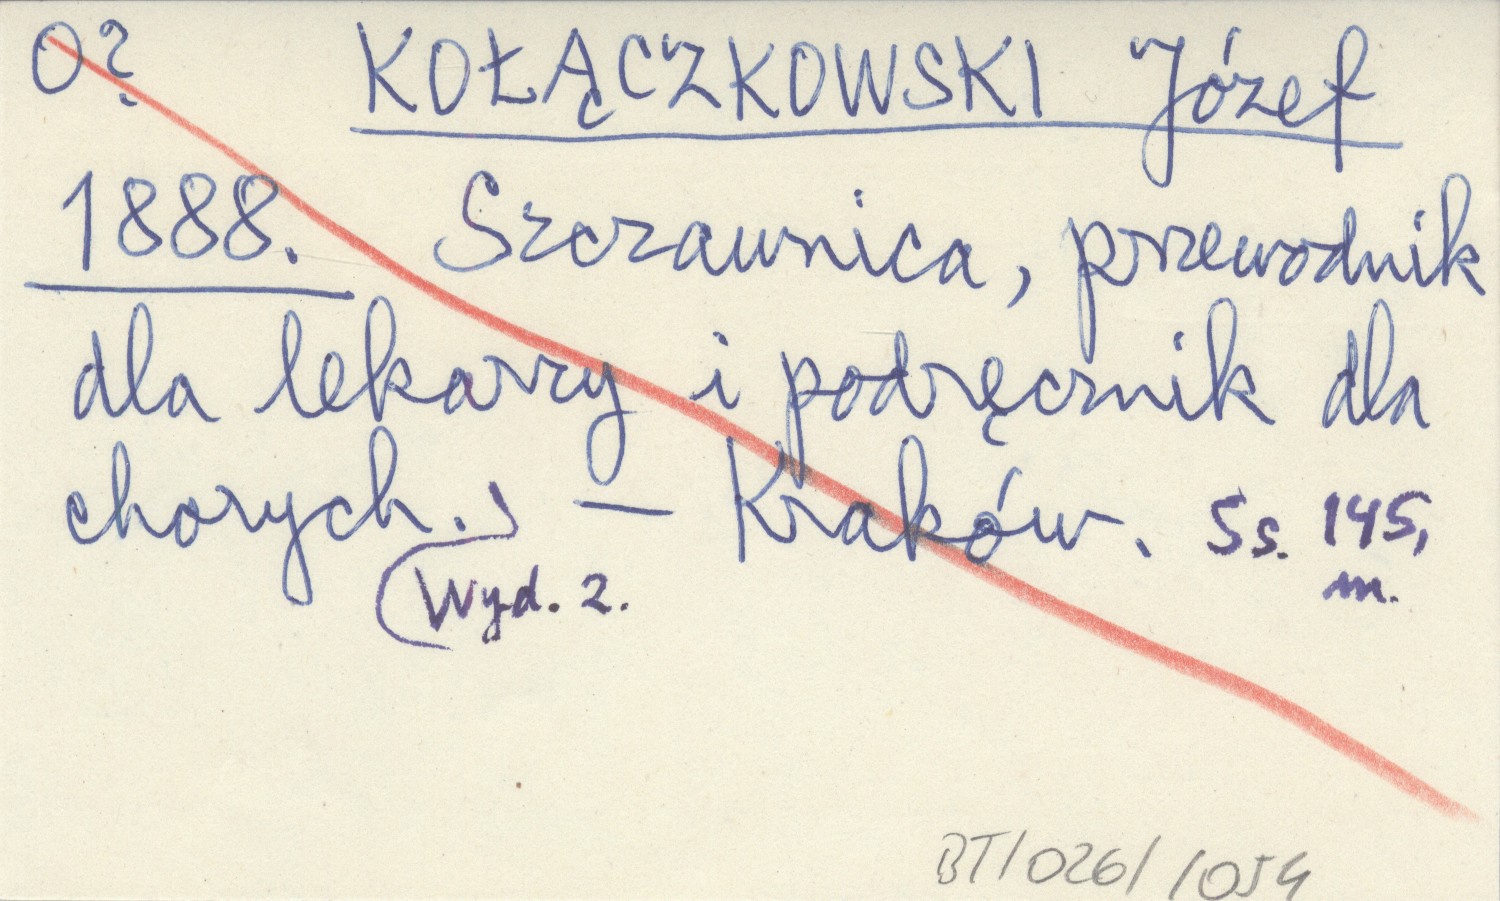 O? KOŁĄCZKOWSKI Józef
1888. Szczawnica, przewodnik
dla lekarzy i podręcznik dla
chorych. — Kraków. Ss. 145,
Wyd. 2. m.
BT/026/1054